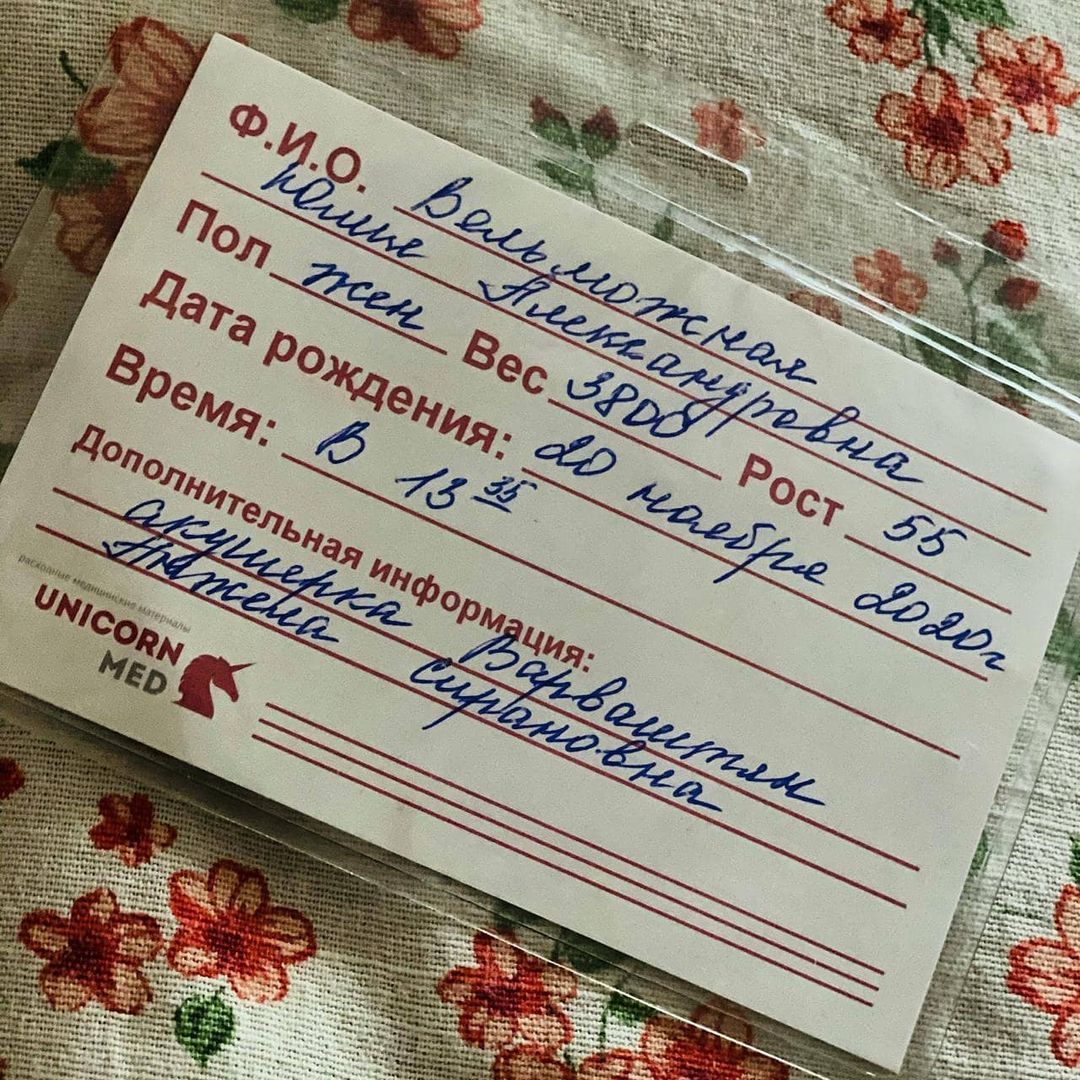 Ф.И.О. Вельможная
Юлия Александровна
Пол жен Вес 3800 Рост 55
Дата рождения: 20 ноября 2020г
Время: В 13 35
Дополнительная информация:
акушерка Варваштян
Анжела Сирановна
расходные медицинские материалы
UNICORN
MED